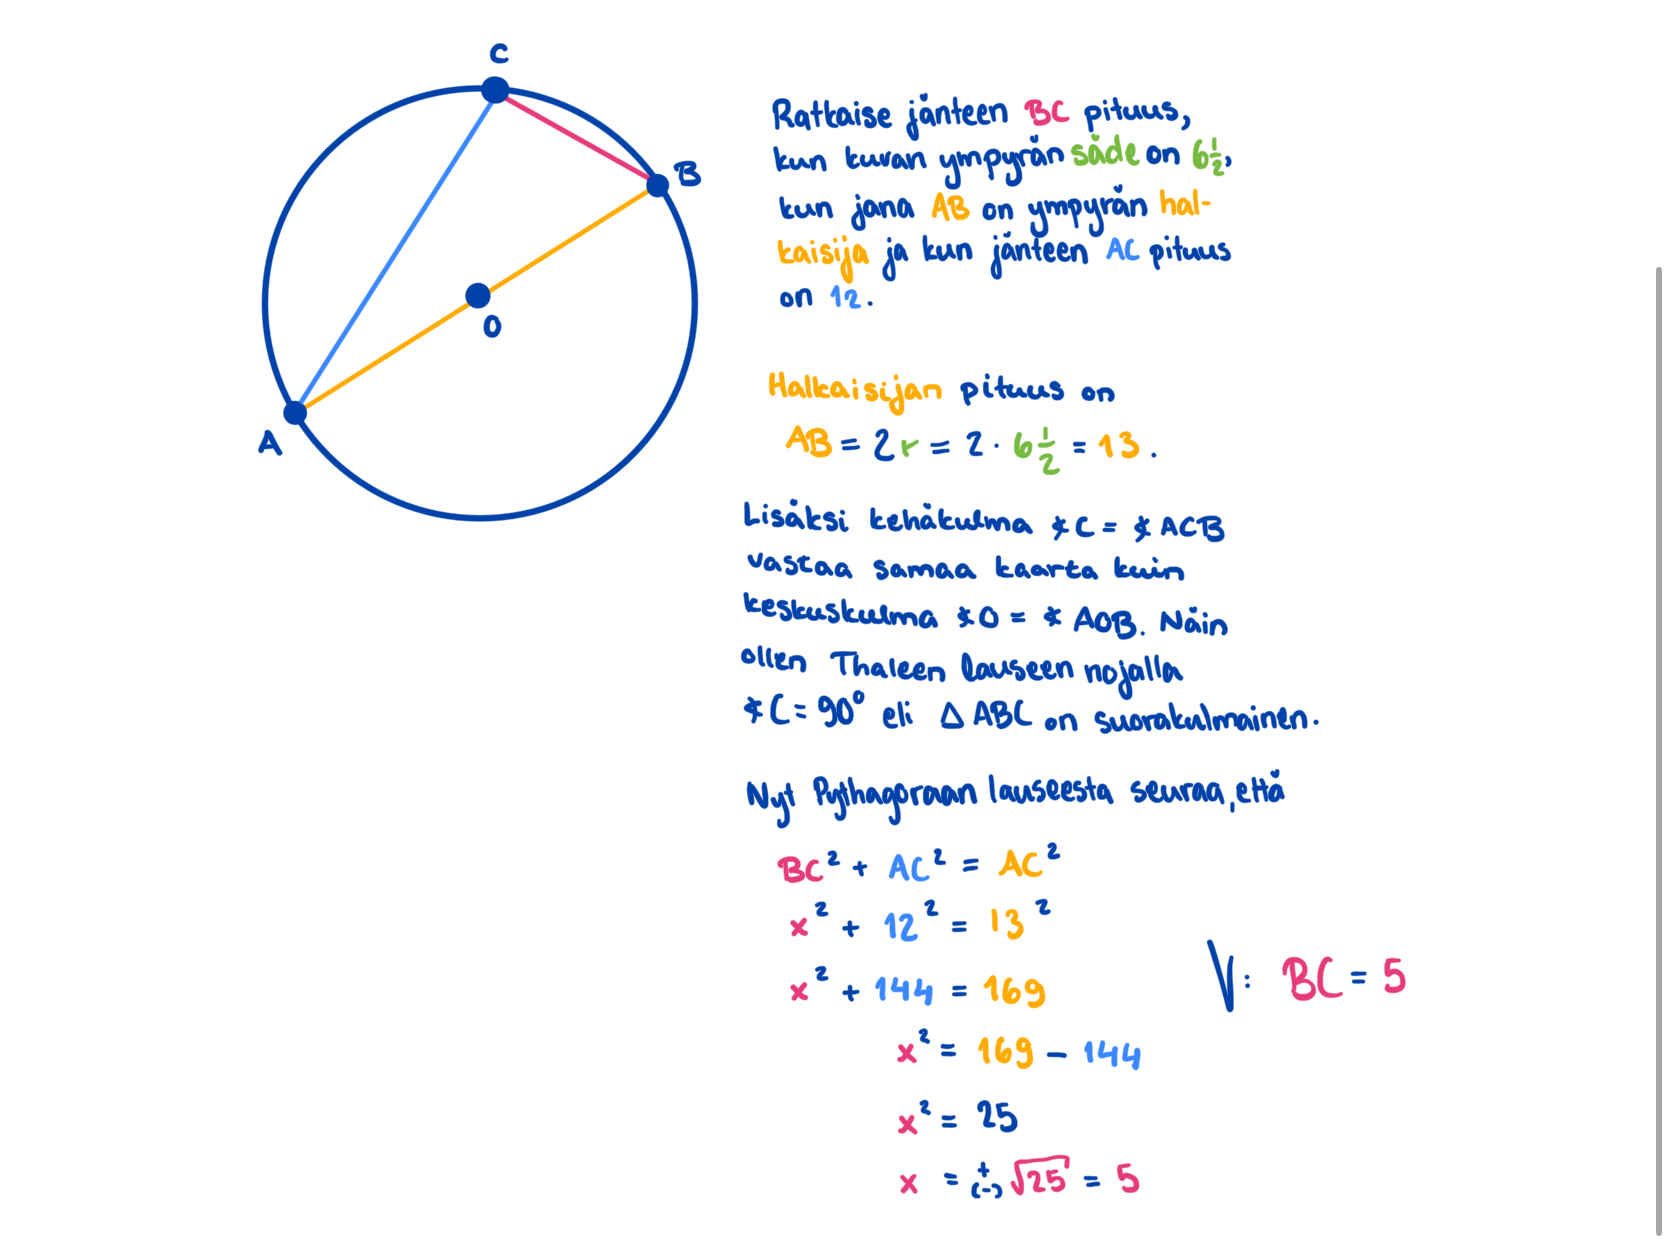 C
B
O
A
Ratkaise jänteen BC pituus,
kun kuvan ympyrän säde on 6 1/2,
kun jana AB on ympyrän hal-
kaisija ja kun jänteen AC pituus
on 12.
Halkaisijan pituus on
AB = 2r = 2 · 6 1/2 = 13.
Lisäksi kehäkulma ∢C = ∢ACB
vastaa samaa kaarta kuin
keskuskulma ∢O = ∢AOB. Näin
ollen Thaleen lauseen nojalla
∢C = 90° eli △ABC on suorakulmainen.
Nyt Pythagoraan lauseesta seuraa, että
BC² + AC² = AC²
x² + 12² = 13²
x² + 144 = 169
x² = 169 - 144
x² = 25
x = +(-) √25 = 5
V: BC = 5